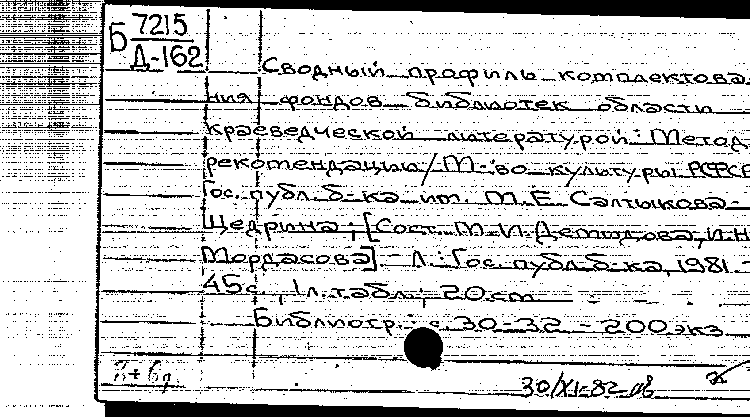 Б 7215
Д-162
Сводный профиль комплектова-
ния фондов библиотек области
краеведческой литературой: Метод.
рекомендации/М-во культуры РСФСР
Гос. публ. б-ка им. М.Е. Салтыкова-
Щедрина; [Сост. М.И. Демидова, И.Н.
Мордасова]. - Л.: Гос. публ. б-ка, 1981 -
45с., 1л. табл.; 20см
Библиогр.: с. 30-32 - 200экз
30/XI-82